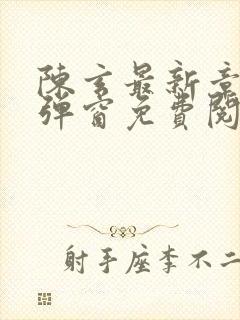 陳玄最新章
彈窗免費閱
射手座李不二